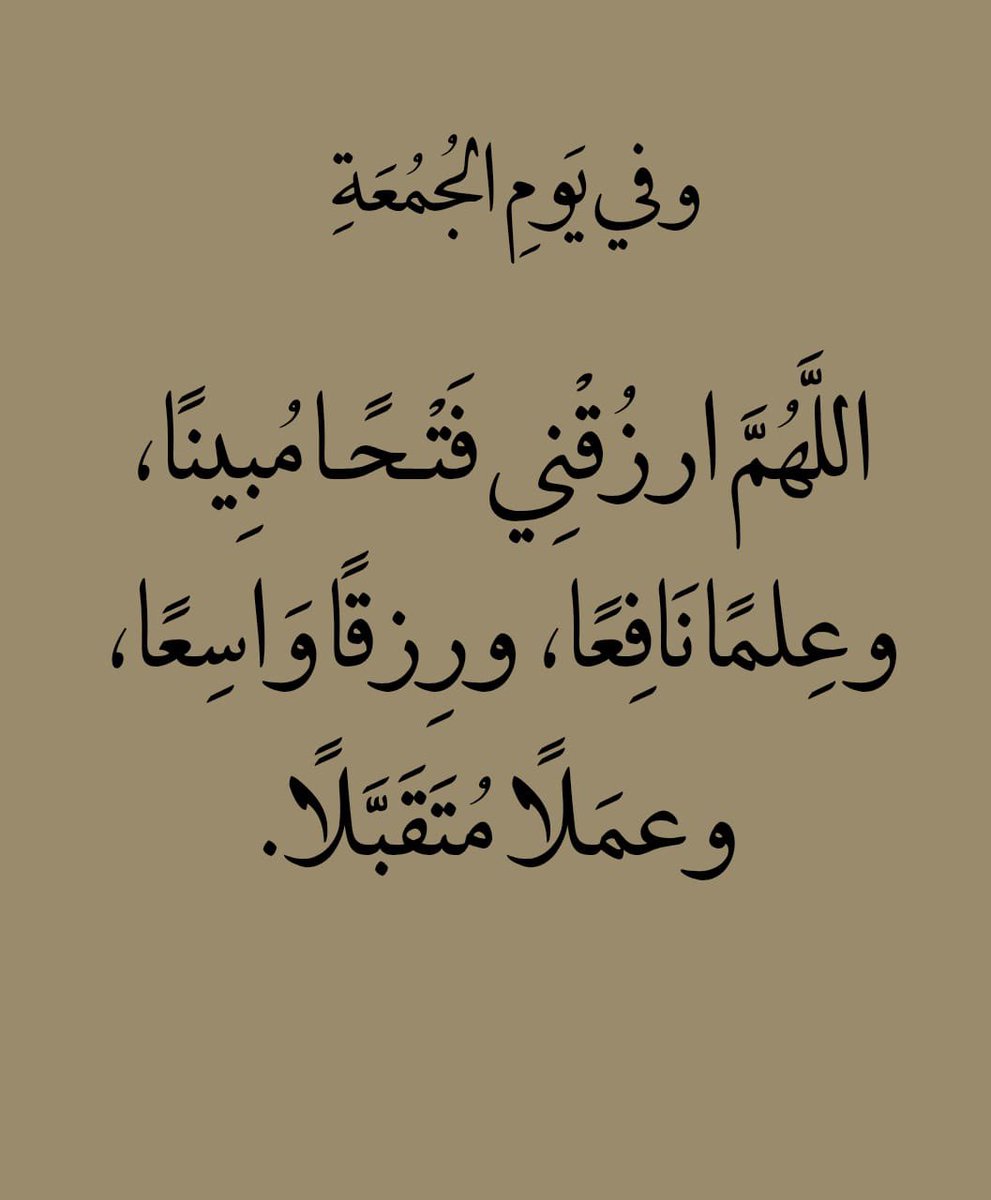 وفي يَومِ الجُمُعَةِ
اللَّهُمَّ ارزُقْنِي فَتْـحًـا مُبِينًا،
وعِلمًا نَافِعًا، ورِزقًا وَاسِعًا،
وعمَلًا مُتَقَبَّلًا.